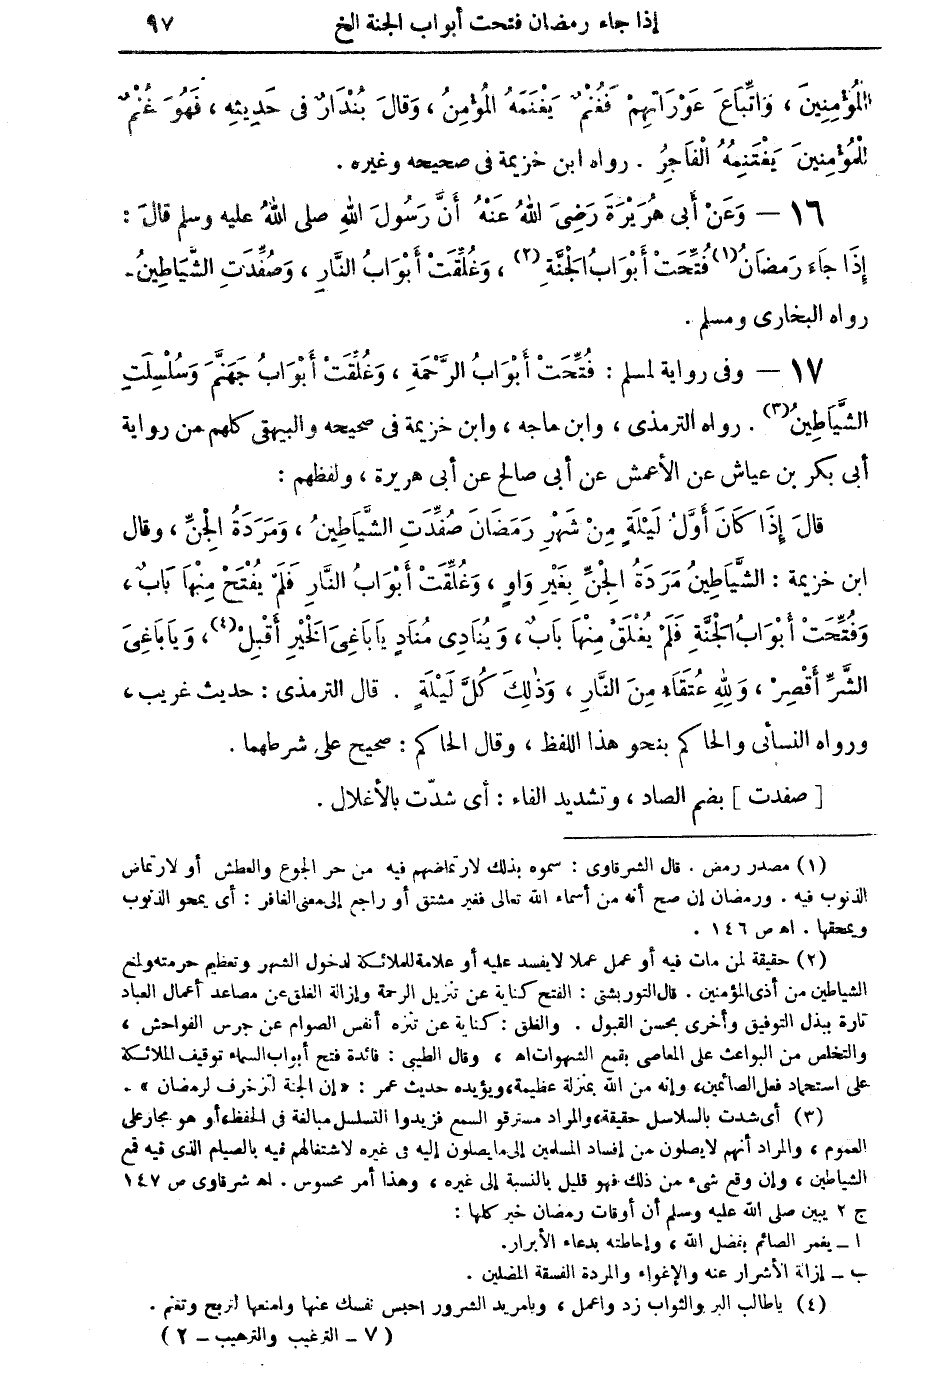 إذا جاء رمضان فتحت أبواب الجنة الخ ٩٧
الْمُؤْمِنِينَ ، وَاتِّبَاعَ عَوْرَاتِهِمْ فَغُنْمٌ يَغْنَمَهُ الْمُؤْمِنُ ، وَقَالَ بُنْدَارٌ فى حَدِيثِهِ ، فَهُوَ غُنْمٌ
لِلْمُؤْمِنِينَ يَغْتَنِمُهُ الْفَاجِرُ . رواه ابن خزيمة فى صحيحه وغيره .
١٦ — وَعَنْ أَبِى هُرَيْرَةَ رَضِىَ اللهُ عَنْهُ أَنَّ رَسُولَ اللهِ صلى اللهُ عليه وسلم قَالَ :
إِذَا جَاءَ رَمَضَانُ(١) فُتِّحَتْ أَبْوَابُ الْجَنَّةِ (٢) ، وَغُلِّقَتْ أَبْوَابُ النَّارِ ، وَصُفِّدَتِ الشَّيَاطِينُ ـ
رواه البخارى ومسلم .
١٧ — وفى رواية لمسلم : فُتِّحَتْ أَبْوَابُ الرَّحْمَةِ ، وَغُلِّقَتْ أَبْوَابُ جَهَنَّمَ وَسُلْسِلَتِ
الشَّيَاطِينُ(٣) . رواه الترمذى ، وابن ماجه ، وابن خزيمة فى صحيحه والبيهقى كلهم من رواية
أبى بكر بن عياش عن الأعمش عن أبى صالح عن أبى هريرة ، ولفظهم :
قَالَ إِذَا كَانَ أَوَّلُ لَيْلَةٍ مِنْ شَهْرِ رَمَضَانَ صُفِّدَتِ الشَّيَاطِينُ ، وَمَرَدَةُ الْجِنِّ ، وقال
ابن خزيمة : الشَّيَاطِينُ مَرَدَةُ الْجِنِّ بِغَيْرِ وَاوٍ ، وَغُلِّقَتْ أَبْوَابُ النَّارِ فَلَمْ يُفْتَحْ مِنْهَا بَابٌ ،
وَفُتِّحَتْ أَبْوَابُ الْجَنَّةِ فَلَمْ يُغْلَقْ مِنْهَا بَابٌ ، وَيُنَادِى مُنَادٍ يَابَاغِىَ الْخَيْرِ أَقْبِلْ(٤) ، وَيَابَاغِىَ
الشَّرِّ أَقْصِرْ ، وَلِلهِ عُتَقَاءُ مِنَ النَّارِ ، وَذٰلِكَ كُلَّ لَيْلَةٍ . قال الترمذى : حديث غريب ،
ورواه النسأئى والحاكم بنحو هذا اللفظ ، وقال الحاكم : صحيح على شرطهما .
[ صفدت ] بضم الصاد ، وتشديد الفاء : أى شدّت بالأغلال .
(١) مصدر رمض . قال الشرقاوى : سموه بذلك لارتماضهم فيه من حر الجوع والعطش أو لارتماض
الذنوب فيه . ورمضان إن صح أنه من أسماء الله تعالى فغير مشتق أو راجع إلى معنى الغافر : أى يمحو الذنوب
ويمحقها . اه ص ١٤٦ .
(٢) حقيقة لمن مات فيه أو عمل عملا لايفسد عليه أو علامة للملائكة لدخول الشهر وتعظيم حرمته ولمنع
الشياطين من أذى المؤمنين . قال التوربشتى : الفتح كناية عن تنزيل الرحمة وإزالة الغلق عن مصاعد أعمال العباد
تارة ببذل التوفيق وأخرى بحسن القبول . والغلق : كناية عن تنزه أنفس الصوام عن جرس الفواحش ،
والتخلص من البواعث على المعاصى بقمع الشهوات اه ، وقال الطيبى : فائدة فتح أبواب السماء توقيف الملائكة
على استحماد فعل الصائمين ، وإنه من الله بمنزلة عظيمة ، ويؤيده حديث عمر : « إن الجنة لتزخرف لرمضان » .
(٣) أى شدت بالسلاسل حقيقة ، والمراد مسترقو السمع فزيدوا التسلسل مبالغة فى الحفظ ، أو هو مجاز على
العموم ، والمراد أنهم لايصلون من إفساد المسلمين إلى مايصلون إليه فى غيره لاشتغالهم فيه بالصيام الذى فيه قمع
الشياطين ، وإن وقع شىء من ذلك فهو قليل بالنسبة إلى غيره ، وهذا أمر محسوس . اه شرقاوى ص ١٤٧
ج ٢ يبين صلى الله عليه وسلم أن أوقات رمضان خير كلها :
ا ـ يغمر الصائم بفضل الله ، وإحاطته بدعاء الأبرار.
ب ـ إزالة الأشرار عنه والإغواء والمردة الفسقة المضلين .
(٤) ياطالب البر والثواب زد واعمل ، ويامريد الشرور احبس نفسك عنها وامنعها لتربح وتغنم .
( ٧ ـ الترغيب والترهيب ـ ٢ )